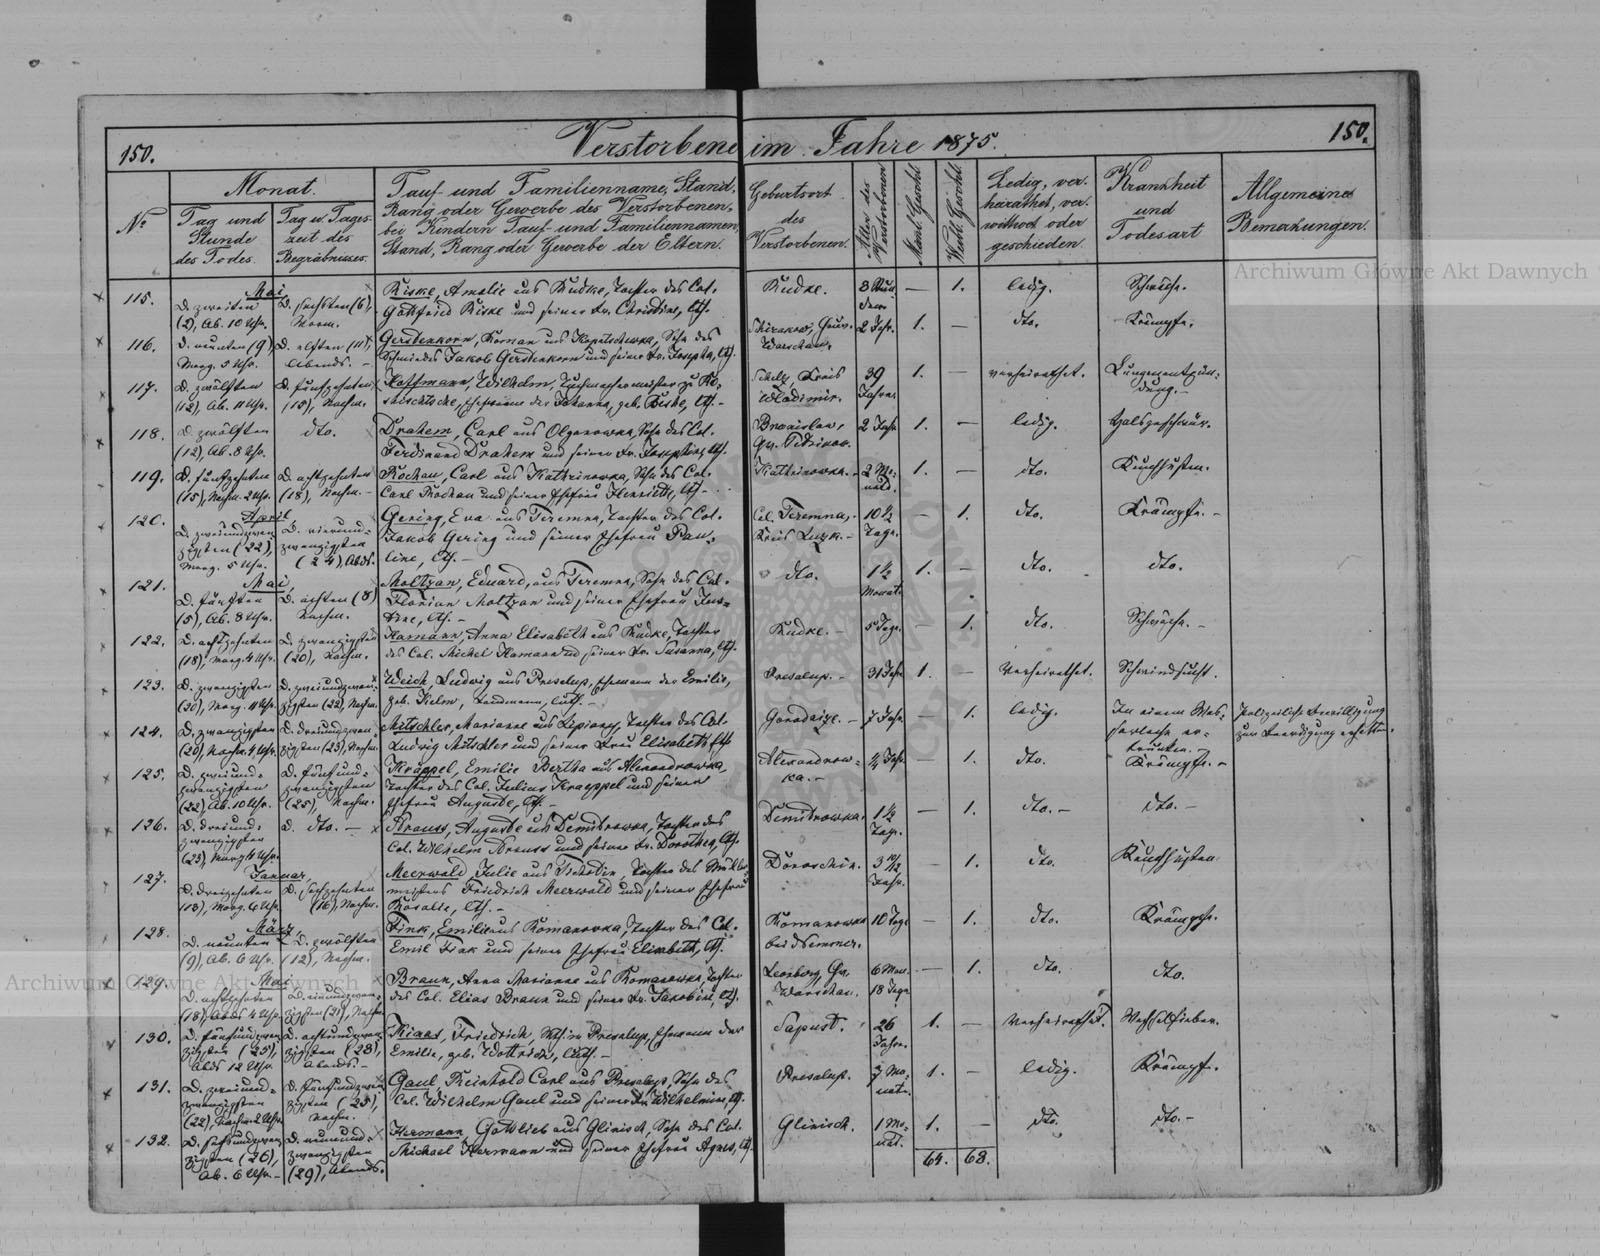 150.
Verstorbene im Jahre 1875.
150.
No
Monat.
Tag und Stunde des Todes.
Tag u. Tageszeit des Begräbnisses.
Tauf- und Familienname, Stand,
Rang oder Gewerbe des Verstorbenen,
bei Kindern Tauf- und Familiennamen,
Stand, Rang oder Gewerbe der Eltern.
Geburtsort
des
Verstorbenen.
Alter des
Verstorbenen
Männl. Geschl.
Weibl. Geschl.
Ledig, ver-
heirathet, ver-
wittwet oder
geschieden.
Krankheit
und
Todesart
Allgemeine
Bemerkungen.
Archiwum Główne Akt Dawnych
115.
Mai
D. zweiten
(2), Ab. 10 Uhr.
D. sechsten (6),
Morm.
Riske, Amalie aus Rudke, Tochter des Col.
Gottfried Riske und seiner Fr. Christine, lth.
Rudke.
—
1.
ledig.
Schwäche.
116.
D. neunten (9),
Morg. 3 Uhr.
D. elften (11),
Abends. –
Gerstenkorn, Roman aus Kopatschewka, Sohn des
Schmiedes Jakob Gerstenkorn und seiner Fr. Josepha, lth.
Warschau.
2 Jahr.
1.
—
dto.
Krämpfe.
117.
D. zwölften
(12), Ab. 11 Uhr.
D. fünfzehnten
(15), Nachm.
Hoffmann, Wilhelm, Tuchmachermeister zu Ro-
schischtsche, Ehemann der Johanna, geb. Riske, lth. –
Kreis
Wladimir.
39
Jahre.
1.
—
verheirathet.
Lungenentzün-
dung. –
118.
D. zwölften
(12), Ab. 8 Uhr.
dto.
Drahem, Carl aus Olganowka, Sohn des Col.
Ferdinand Drahem und seiner Fr. Josephine, lth.
2 Jahr
1.
—
ledig.
Halsgeschwür.
119.
D. fünfzehnten
(15), Nachm. 2 Uhr.
D. achtzehnten
(18), Nachm. –
Rochau, Carl aus Kathrinowka, Sohn des Col.
Carl Rochau und seiner Ehefrau Henriette, lth. –
Kathrinowka. –
2 Mo-
nat.
1.
—
dto.
Keuchhusten.
120.
April
D. zweiundzwan-
zigsten (22),
Morg. 5 Uhr.
D. vierund-
zwanzigsten
(24), Abds.
Gering, Eva aus Teremna, Tochter des Col.
Jakob Gering und seiner Ehefrau Pau-
line, lth. –
Col. Teremna,
Kreis Luzk. –
10½
Tage.
—
1.
dto.
Krämpfe. –
121.
Mai
D. fünften
(5), Ab. 8 Uhr.
D. achten (8)
Nachm.
Moltzan, Eduard, aus Teremna, Sohn des Col.
Florian Moltzan und seiner Ehefrau Jus-
tine, lth. –
dto.
1½
Monat.
1.
—
dto.
dto.
122.
D. achtzehnten
(18), Morg. 4 Uhr.
D. zwanzigsten
(20), Nachm.
Hamann, Anna Elisabeth aus Rudke, Tochter
des Col. Michel Hamann und seiner Fr. Susanna, lth.
Rudke. –
5 Tage.
—
1.
dto.
Schwäche. –
123.
D. zwanzigsten
(20), Morg. 11 Uhr.
D. zweiundzwan-
zigsten (22), Nachm.
Weich, Ludwig aus Presalup, Ehemann der Emilie,
geb. Kelm, Landmann, luth. –
Presalup. –
31 Jahr
1.
—
verheirathet.
Schwindsucht.
124.
D. zwanzigsten
(20), Nachm. 4 Uhr.
D. dreiundzwan-
zigsten (23), Nachm.
Mitschler, Marianne aus Lipiany, Tochter des Col.
Ludwig Mitschler und seiner Frau Elisabeth, lth.
7 Jahr.
—
1.
ledig.
In einem Was-
serloche er-
trunken. –
Polizeiliche Bewilligung
zur Beerdigung erhalten.
125.
D. zweiund-
zwanzigsten
(22) Ab. 10 Uhr.
D. fünfund-
zwanzigsten
(25), Nachm.
Kräppel, Emilie Bertha aus Alexandrowka,
Tochter des Col. Julius Kraeppel und seiner
Ehefrau Auguste, lth. –
Alexandrow-
ka. –
¼ Jahr.
—
1.
dto.
Krämpfe. –
126.
D. dreiund-
zwanzigsten
D. dto. –
Strauss, Auguste aus Demidrowka, Tochter des
Col. Wilhelm Strauss und seiner Fr. Dorothea, lth.
Demidrowka.
1½
Tage.
—
1.
dto. –
dto. –
127.
Januar,
D. dreizehnten
(13), Morg. 6 Uhr.
D. sechzehnten
(16), Nachm.
Meerwald, Julie aus Tschodin, Tochter des Mühlen-
meisters Friedrich Meerwald und seiner Ehefrau
Rosalie, lth. –
3 10/12
Jahr.
—
1.
dto.
Keuchhusten.
128.
März,
D. neunten
(9), Ab. 6 Uhr.
D. zwölften
(12), Nachm.
Fink, Emilie aus Romanowka, Tochter des Col.
Emil Fink und seiner Ehefrau Elisabeth, lth.
Romanowka
10 Tage
—
1.
dto.
Krämpfe.
129.
Mai
D. achtzehnten
(18), Abds 4 Uhr.
D. einundzwan-
zigsten (21), Nachm.
Braun, Anna Marianne aus Romanowka, Tochter
des Col. Elias Braun und seiner Fr. Jakobine, lth.
Leonberg, Gv.
Warschau.
6 Mon.
18 Tage
—
1.
dto.
dto.
Archiwum Główne Akt Dawnych
130.
D. fünfundzwan-
zigsten (25),
Abds 12 Uhr.
D. achtundzwan-
zigsten (28),
Abends. –
Kinas, Friedrich, Presalup, Ehemann der
Emilie, geb. Wottrich, luth. –
Sapust.
26
Jahre.
1.
—
verheirathet.
Wechselfieber.
131.
D. zweiund-
zwanzigsten
(22), Nachm. 2 Uhr.
D. fünfundzwan-
zigsten (25),
Nachm.
Gaul, Reinhold Carl aus Presalup, Sohn des
Col. Wilhelm Gaul und seiner Fr. Wilhelmine, lth.
Presalup.
7 Mo-
nat.
1.
—
ledig.
Krämpfe.
132.
D. sechsundzwan-
zigsten (26),
Ab. 6 Uhr. –
D. neunund-
zwanzigsten
(29), Abends.
Hermann, Gottlieb aus Glinisch, Sohn des Col.
Michael Hermann und seiner Ehefrau Agnes, lth.
Glinisch.
1 Mo-
nat.
1.
—
dto.
dto. –
64.
68.